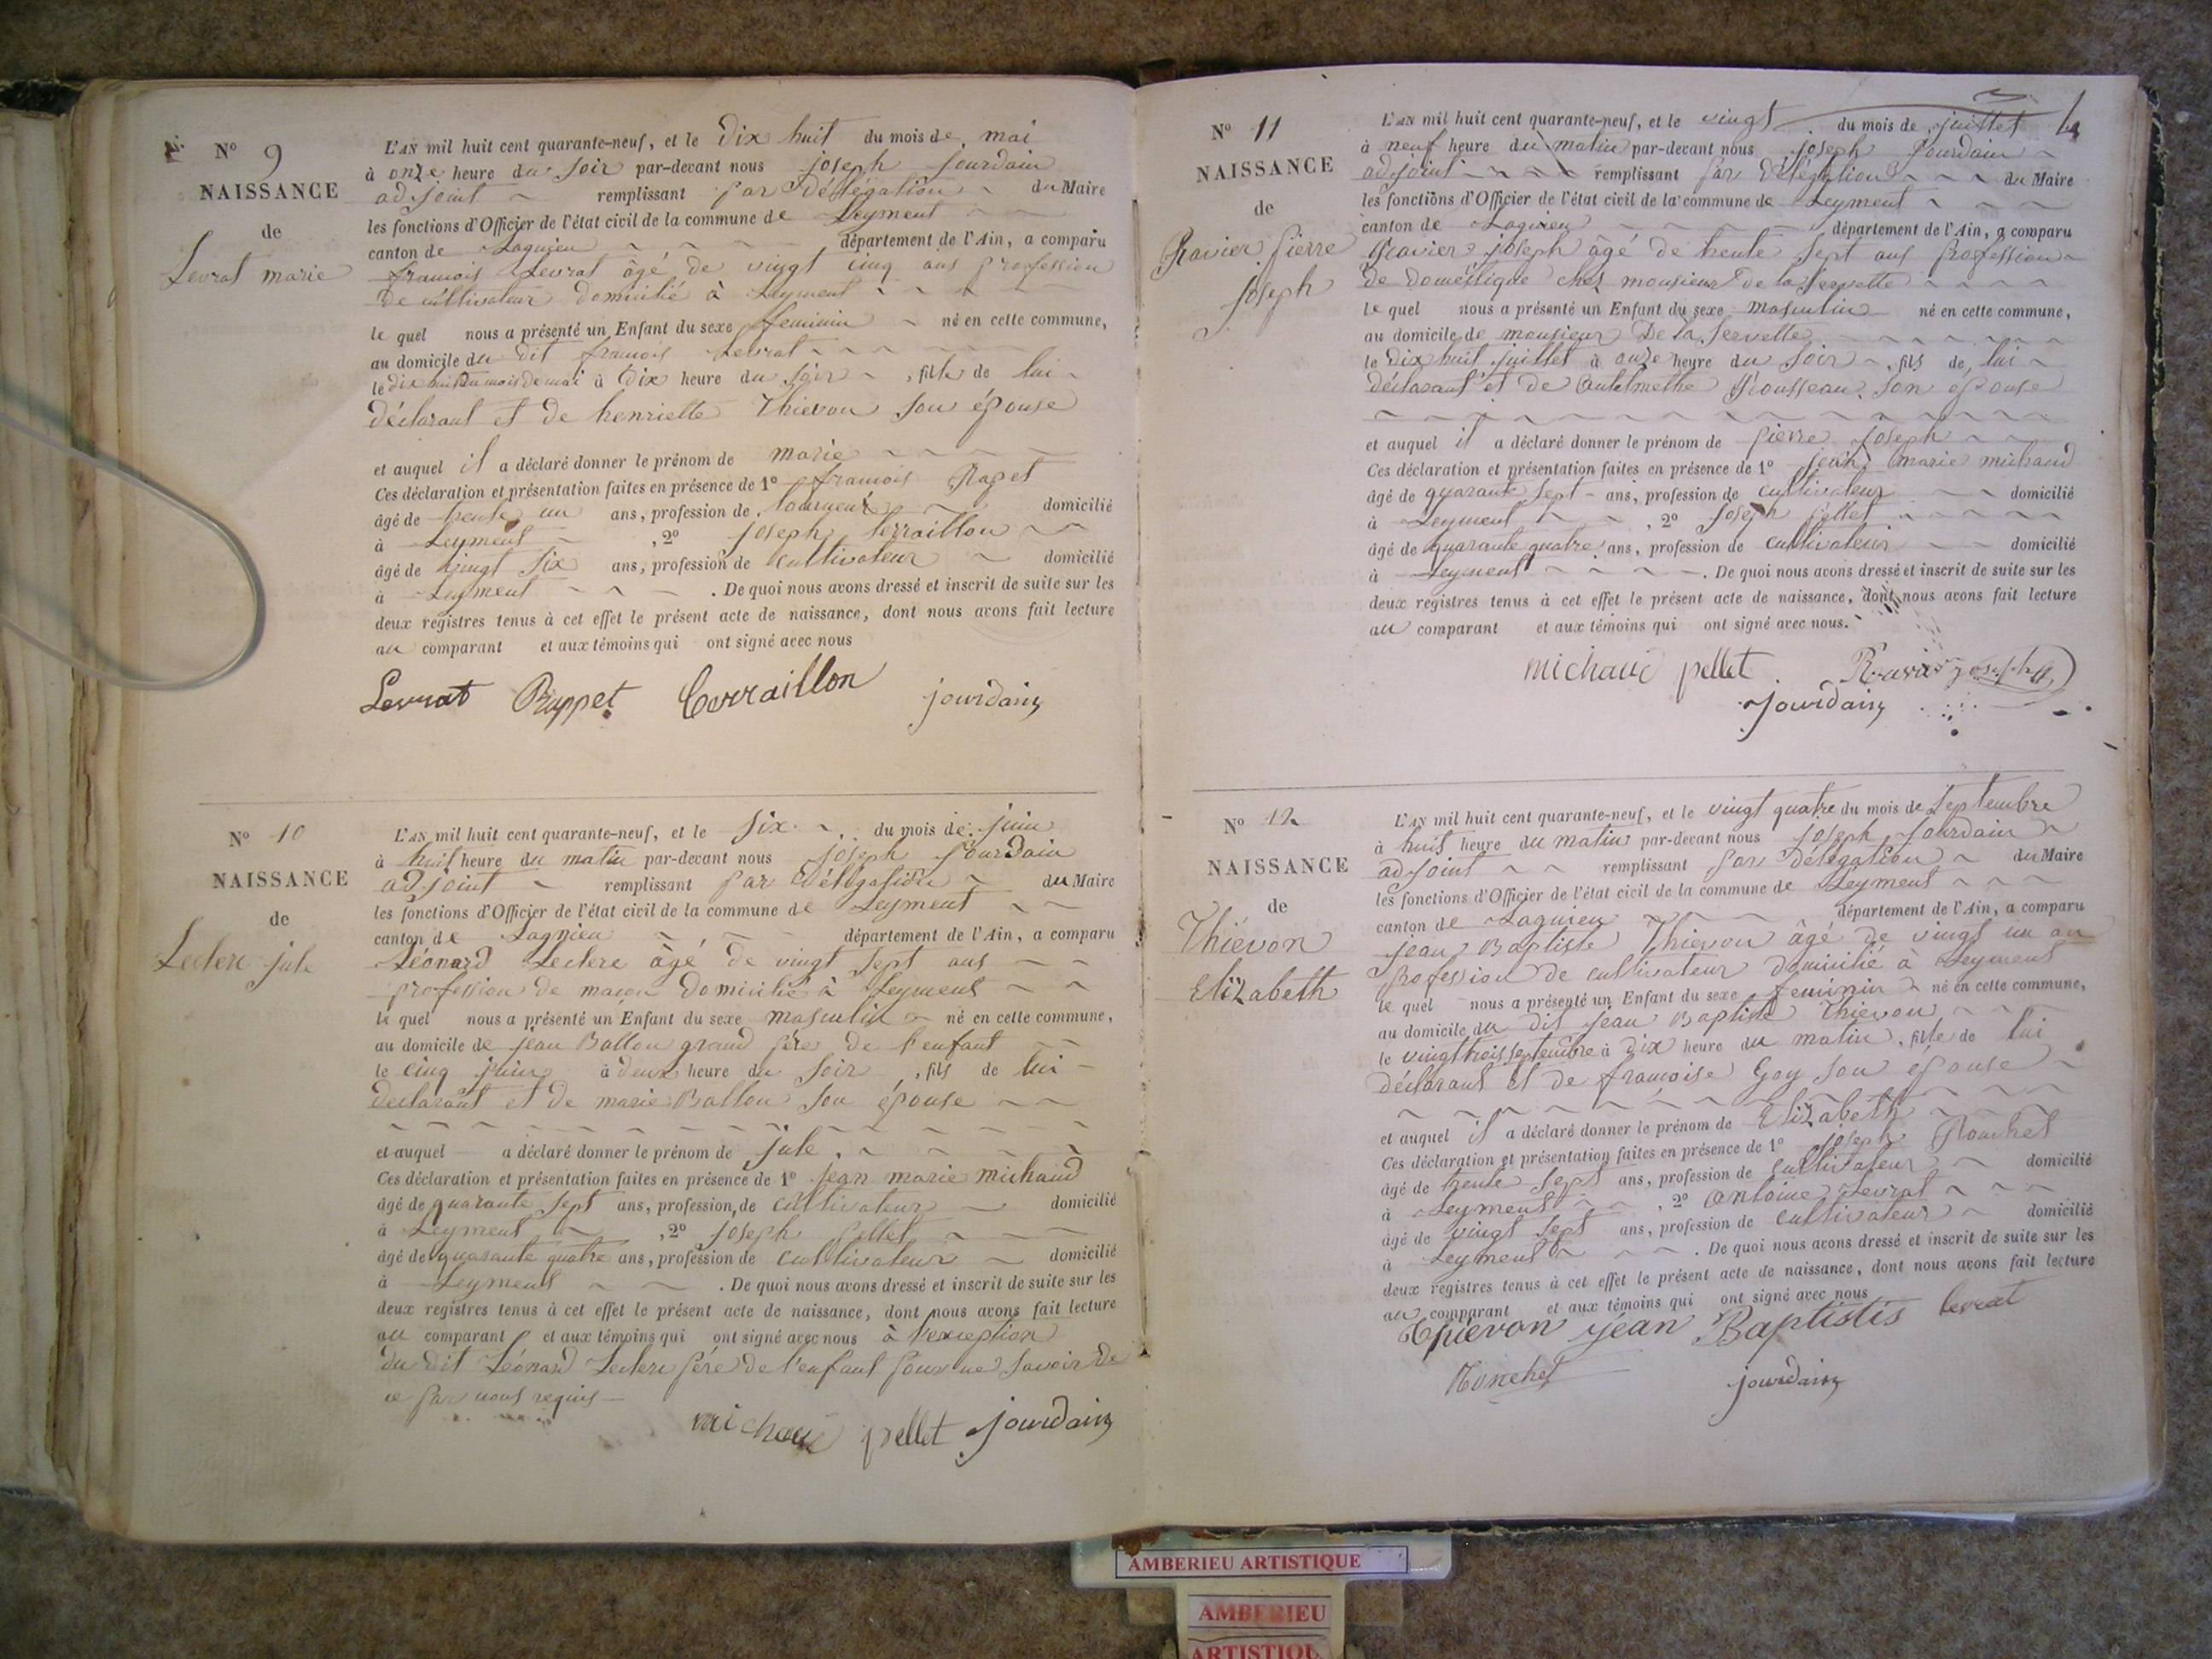 N° 9
NAISSANCE
de
Levrat marie
L'AN mil huit cent quarante-neuf, et le Dix huit du mois de mai
à onze heure du Soir par-devant nous joseph jourdain
adjoint remplissant par délégation du Maire
les fonctions d'Officier de l'état civil de la commune de Leyment
canton de Lagnieu département de l'Ain, a comparu
francois Levrat âgé de vingt cinq ans profession
De cultivateur domicilié à Leyment
le quel nous a présenté un Enfant du sexe feminin né en cette commune,
au domicile du dit francois Levrat
le dix huit du mois de mai à dix heure du soir, fille de lui
déclarant et de henriette Thievon son épouse
et auquel il a déclaré donner le prénom de marie
Ces déclaration et présentation faites en présence de 1° francois Rapet
âgé de trente un ans, profession de domicilié
à Leyment, 2° joseph Terraillon
âgé de vingt six ans, profession de cultivateur domicilié
à Leyment. De quoi nous avons dressé et inscrit de suite sur les
deux registres tenus à cet effet le présent acte de naissance, dont nous avons fait lecture
au comparant et aux témoins qui ont signé avec nous
Levrat Rappet Terraillon jourdain
N° 10
NAISSANCE
de
Leclerc jule
L'AN mil huit cent quarante-neuf, et le Six du mois de juin
à huit heure du matin par-devant nous joseph jourdain
adjoint remplissant par délégation du Maire
les fonctions d'Officier de l'état civil de la commune de Leyment
canton de Lagnieu département de l'Ain, a comparu
Léonard Leclerc âgé de vingt sept ans
profession de macon domicilié à Leyment
le quel nous a présenté un Enfant du sexe masculin né en cette commune,
au domicile de jean Ballou grand père de l'enfant
le cinq juin à deux heure du soir, fils de lui
déclarant et de marie Ballou son épouse
et auquel a déclaré donner le prénom de jule
Ces déclaration et présentation faites en présence de 1° jean marie michaud
âgé de quarante sept ans, profession de cultivateur domicilié
à Leyment, 2° joseph pellet
âgé de quarante quatre ans, profession de cultivateur domicilié
à Leyment. De quoi nous avons dressé et inscrit de suite sur les
deux registres tenus à cet effet le présent acte de naissance, dont nous avons fait lecture
au comparant et aux témoins qui ont signé avec nous à l'exception
du dit Léonard Leclerc père de l'enfant pour ne savoir de
ce par nous requis
michaud pellet jourdain
N° 11
NAISSANCE
de
Ravier pierre
joseph
L'AN mil huit cent quarante-neuf, et le vingt du mois de juillet
à neuf heure du matin par-devant nous joseph jourdain
adjoint remplissant par délégation du Maire
les fonctions d'Officier de l'état civil de la commune de Leyment
canton de Lagnieu département de l'Ain, a comparu
Ravier joseph âgé de trente sept ans profession
de domestique chez monsieur de la Servette
le quel nous a présenté un Enfant du sexe masculin né en cette commune,
au domicile de monsieur De la Servette
le dix huit juillet à onze heure du soir, fils de lui
déclarant et de Rousseau son épouse
et auquel il a déclaré donner le prénom de pierre joseph
Ces déclaration et présentation faites en présence de 1° jean marie michaud
âgé de quarante sept ans, profession de cultivateur domicilié
à Leyment, 2° joseph pellet
âgé de quarante quatre ans, profession de cultivateur domicilié
à Leyment. De quoi nous avons dressé et inscrit de suite sur les
deux registres tenus à cet effet le présent acte de naissance, dont nous avons fait lecture
au comparant et aux témoins qui ont signé avec nous.
michaud pellet joseph
jourdain
N° 12
NAISSANCE
de
Thiévon
Elizabeth
L'AN mil huit cent quarante-neuf, et le vingt quatre du mois de Septembre
à huit heure du matin par-devant nous joseph jourdain
adjoint remplissant par délégation du Maire
les fonctions d'Officier de l'état civil de la commune de Leyment
canton de Lagnieu département de l'Ain, a comparu
jean Baptiste Thievon âgé de vingt un an
profession de cultivateur domicilié à Leyment
le quel nous a présenté un Enfant du sexe feminin né en cette commune,
au domicile du dit jean Baptiste Thievon
le vingt trois septembre à dix heure du matin, fille de lui
déclarant et de francoise Goy son épouse
et auquel il a déclaré donner le prénom de Elizabeth
Ces déclaration et présentation faites en présence de 1° joseph Ronchet
âgé de trente sept ans, profession de cultivateur domicilié
à Leyment, 2° antoine Levrat
âgé de vingt sept ans, profession de cultivateur domicilié
à Leyment. De quoi nous avons dressé et inscrit de suite sur les
deux registres tenus à cet effet le présent acte de naissance, dont nous avons fait lecture
au comparant et aux témoins qui ont signé avec nous
Thiévon jean Baptistis levrat
Ronchet jourdain
AMBERIEU ARTISTIQUE
AMBERIEU
ARTISTIQU